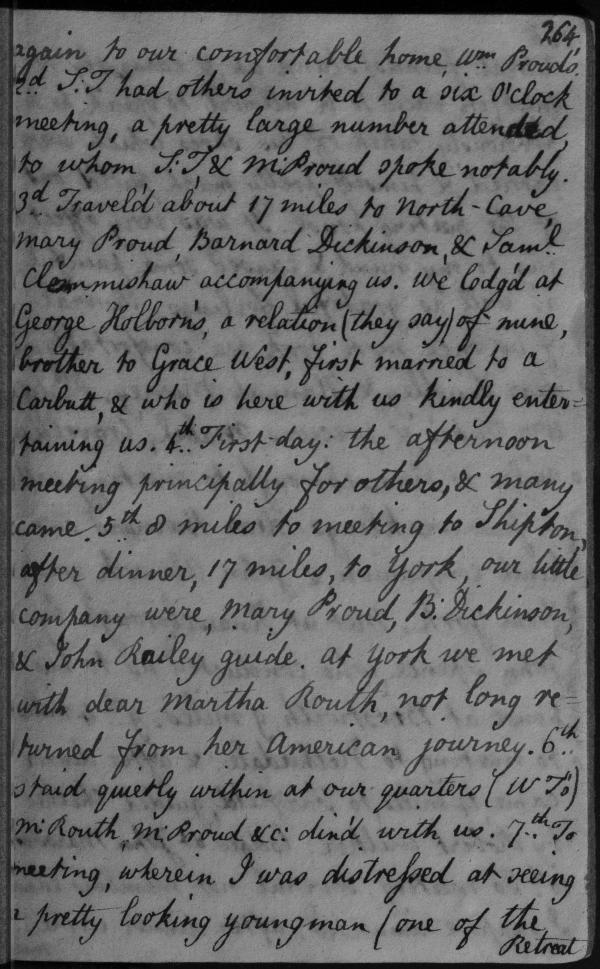 264
again to our comfortable home, Wm Proud's.
2d S:T had others invited to a six O'clock
meeting, a pretty large number attended,
to whom S:T, & M:Proud spoke notably.
3d Travel'd about 17 miles to North-Cave,
Mary Proud, Barnard Dickinson, & Saml
Clemmishaw accompanying us. We lodg'd at
George Holborn's, a relation (they say) of mine,
brother to Grace West, first married to a
Carbutt, & who is here with us kindly enter=
taining us. 4th First-day: the afternoon
meeting principally for others, & many
came. 5th 8 miles to meeting to Shipton,
after dinner, 17 miles, to York, our little
company were, Mary Proud, B: Dickinson,
& John Railey guide. at York we met
with dear Martha Routh, not long re=
turned from her American journey. 6th
staid quietly within at our quarters (W T's)
M:Routh, M:Proud &c: din'd with us. 7th To
meeting, wherein I was distressed at seeing
a pretty looking youngman (one of the
Retreat